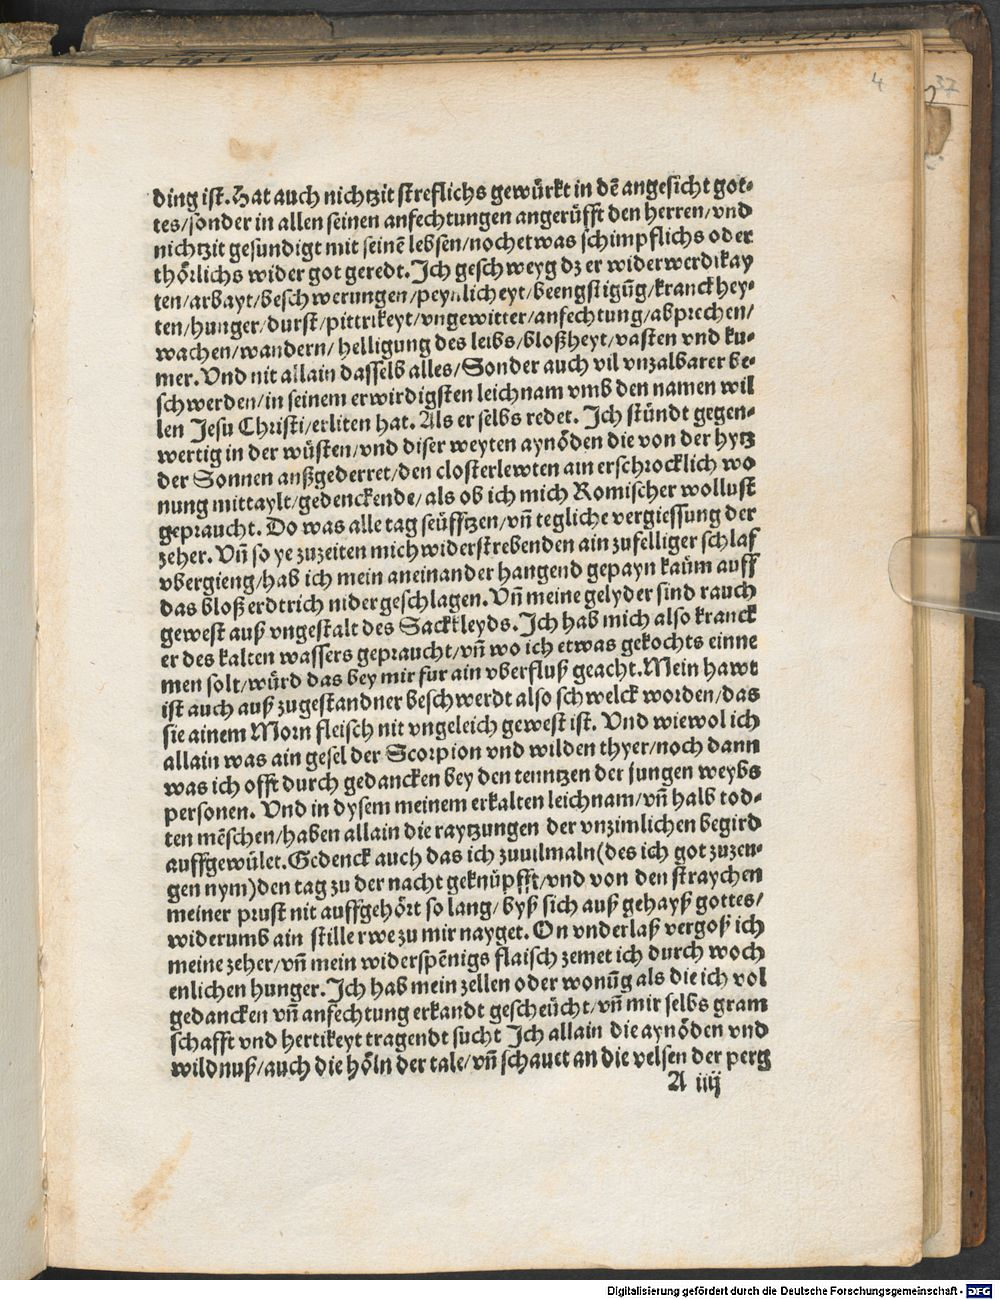 4
37
ding ist. Hat auch nichtzit streflichs gewürkt in dē angesicht got-
tes/sonder in allen seinen anfechtungen angerüfft den herren/vnd
nichtzit gesundigt mit seinē lebsen/noch etwas schimpflichs oder
thörlichs wider got geredt. Ich geschweyg dz er widerwerdikay
ten/arbayt/beschwerungen/peynlicheyt/beengstigūg/kranckhey-
ten/hunger/durst/pittrikeyt/vngewitter/anfechtung/absprechen/
wachen/wandern/ helligung des leibs/bloßheyt/vasten vnd ku-
mer. Vnd nit allain dasselb alles/Sonder auch vil vnzalbarer be-
schwerden/in seinem erwirdigsten leichnam vmb den namen wil
len Jesu Christi/erliten hat. Als er selbs redet. Ich stündt gegen-
wertig in der wüsten/vnd diser weyten aynöden die von der hytz
der Sonnen anßgederret/den closterlewten ain erschrocklich wo
nung mittaylt/gedenckende/als ob ich mich Romischer wollust
gepraucht. Do was alle tag seüfftzen/vñ tegliche vergiessung der
zeher. Vñ so ye zuzeiten mich widerstrebenden ain zufelliger schlaf
vbergieng/hab ich mein aneinander hangend gepayn kaüm auff
das bloß erdtrich nidergeschlagen. Vñ meine gelyder sind rauch
gewest auß vngestalt des Sackkleyds. Ich hab mich also kranck
er des kalten wassers gepraucht/vñ wo ich etwas gekochts einne
men solt/würd das bey mir fur ain vberfluß geacht. Mein hawt
ist auch auß zugestandner beschwerdt also schwelck worden/das
sie ainem Morn fleisch nit vngeleich gewest ist. Vnd wiewol ich
allain was ain gesel der Scorpion vnd wilden thyer/noch dann
was ich offt durch gedancken bey den tenntzen der jungen weybs
personen. Vnd in dysem meinem erkalten leichnam/vñ halb tod-
ten mēschen/haben allain die raytzungen der vnzimlichen begird
auffgewület. Gedenck auch das ich zuuilmaln(des ich got zuzeu-
gen nym)den tag zu der nacht geknüpfft/vnd von den straychen
meiner prust nit auffgehört so lang/byß sich auß gehayß gottes/
widerumb ain stille rwe zu mir nayget. On vnderlaß vergoß ich
meine zeher/vñ mein widerspēnigs flaisch zemet ich durch woch
enlichen hunger. Ich hab mein zellen oder wonūg als die ich vol
gedancken vñ anfechtung erkandt gescheücht/vñ mir selbs gram
schafft vnd hertikeyt tragendt sucht Ich allain die aynöden vnd
wildnuß/auch die höln der tale/vñ schauet an die velsen der perg
A iiij
Digitalisierung gefördert durch die Deutsche Forschungsgemeinschaft - DFG